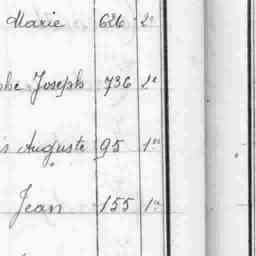 Marie 626 2e
phe Joseph 736 2e
is Auguste 95 1er
Jean 155 1er